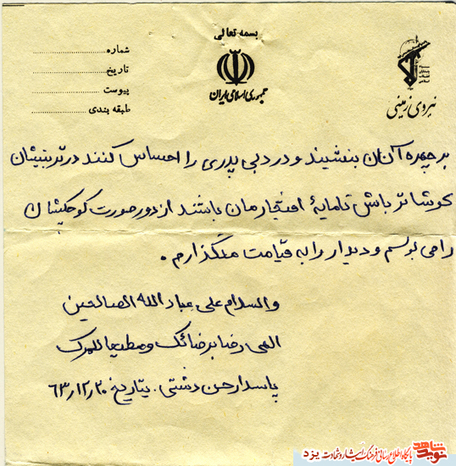 بسمه تعالی
جمهوری اسلامی ایران
نیروی زمینی
شماره
تاریخ
پیوست
طبقه بندی
بر چهره آنان بنشیند و درد بی پدری را احساس کنند در تربیتشان
کوشاتر باش تا مایهٔ افتخارمان باشند از دور صورت کوچکشان
را می بوسم و دیدار را به قیامت میگذارم.
والسلام علی عباد الله الصالحین
الهی رضا برضائک و مطیعا لامرک
پاسدار حسن دشتی. بتاریخ ۶۳/۱۲/۲۰
پایگاه اطلاع رسانی فرهنگ ایثار و شهادت یزد
نوید شاهد